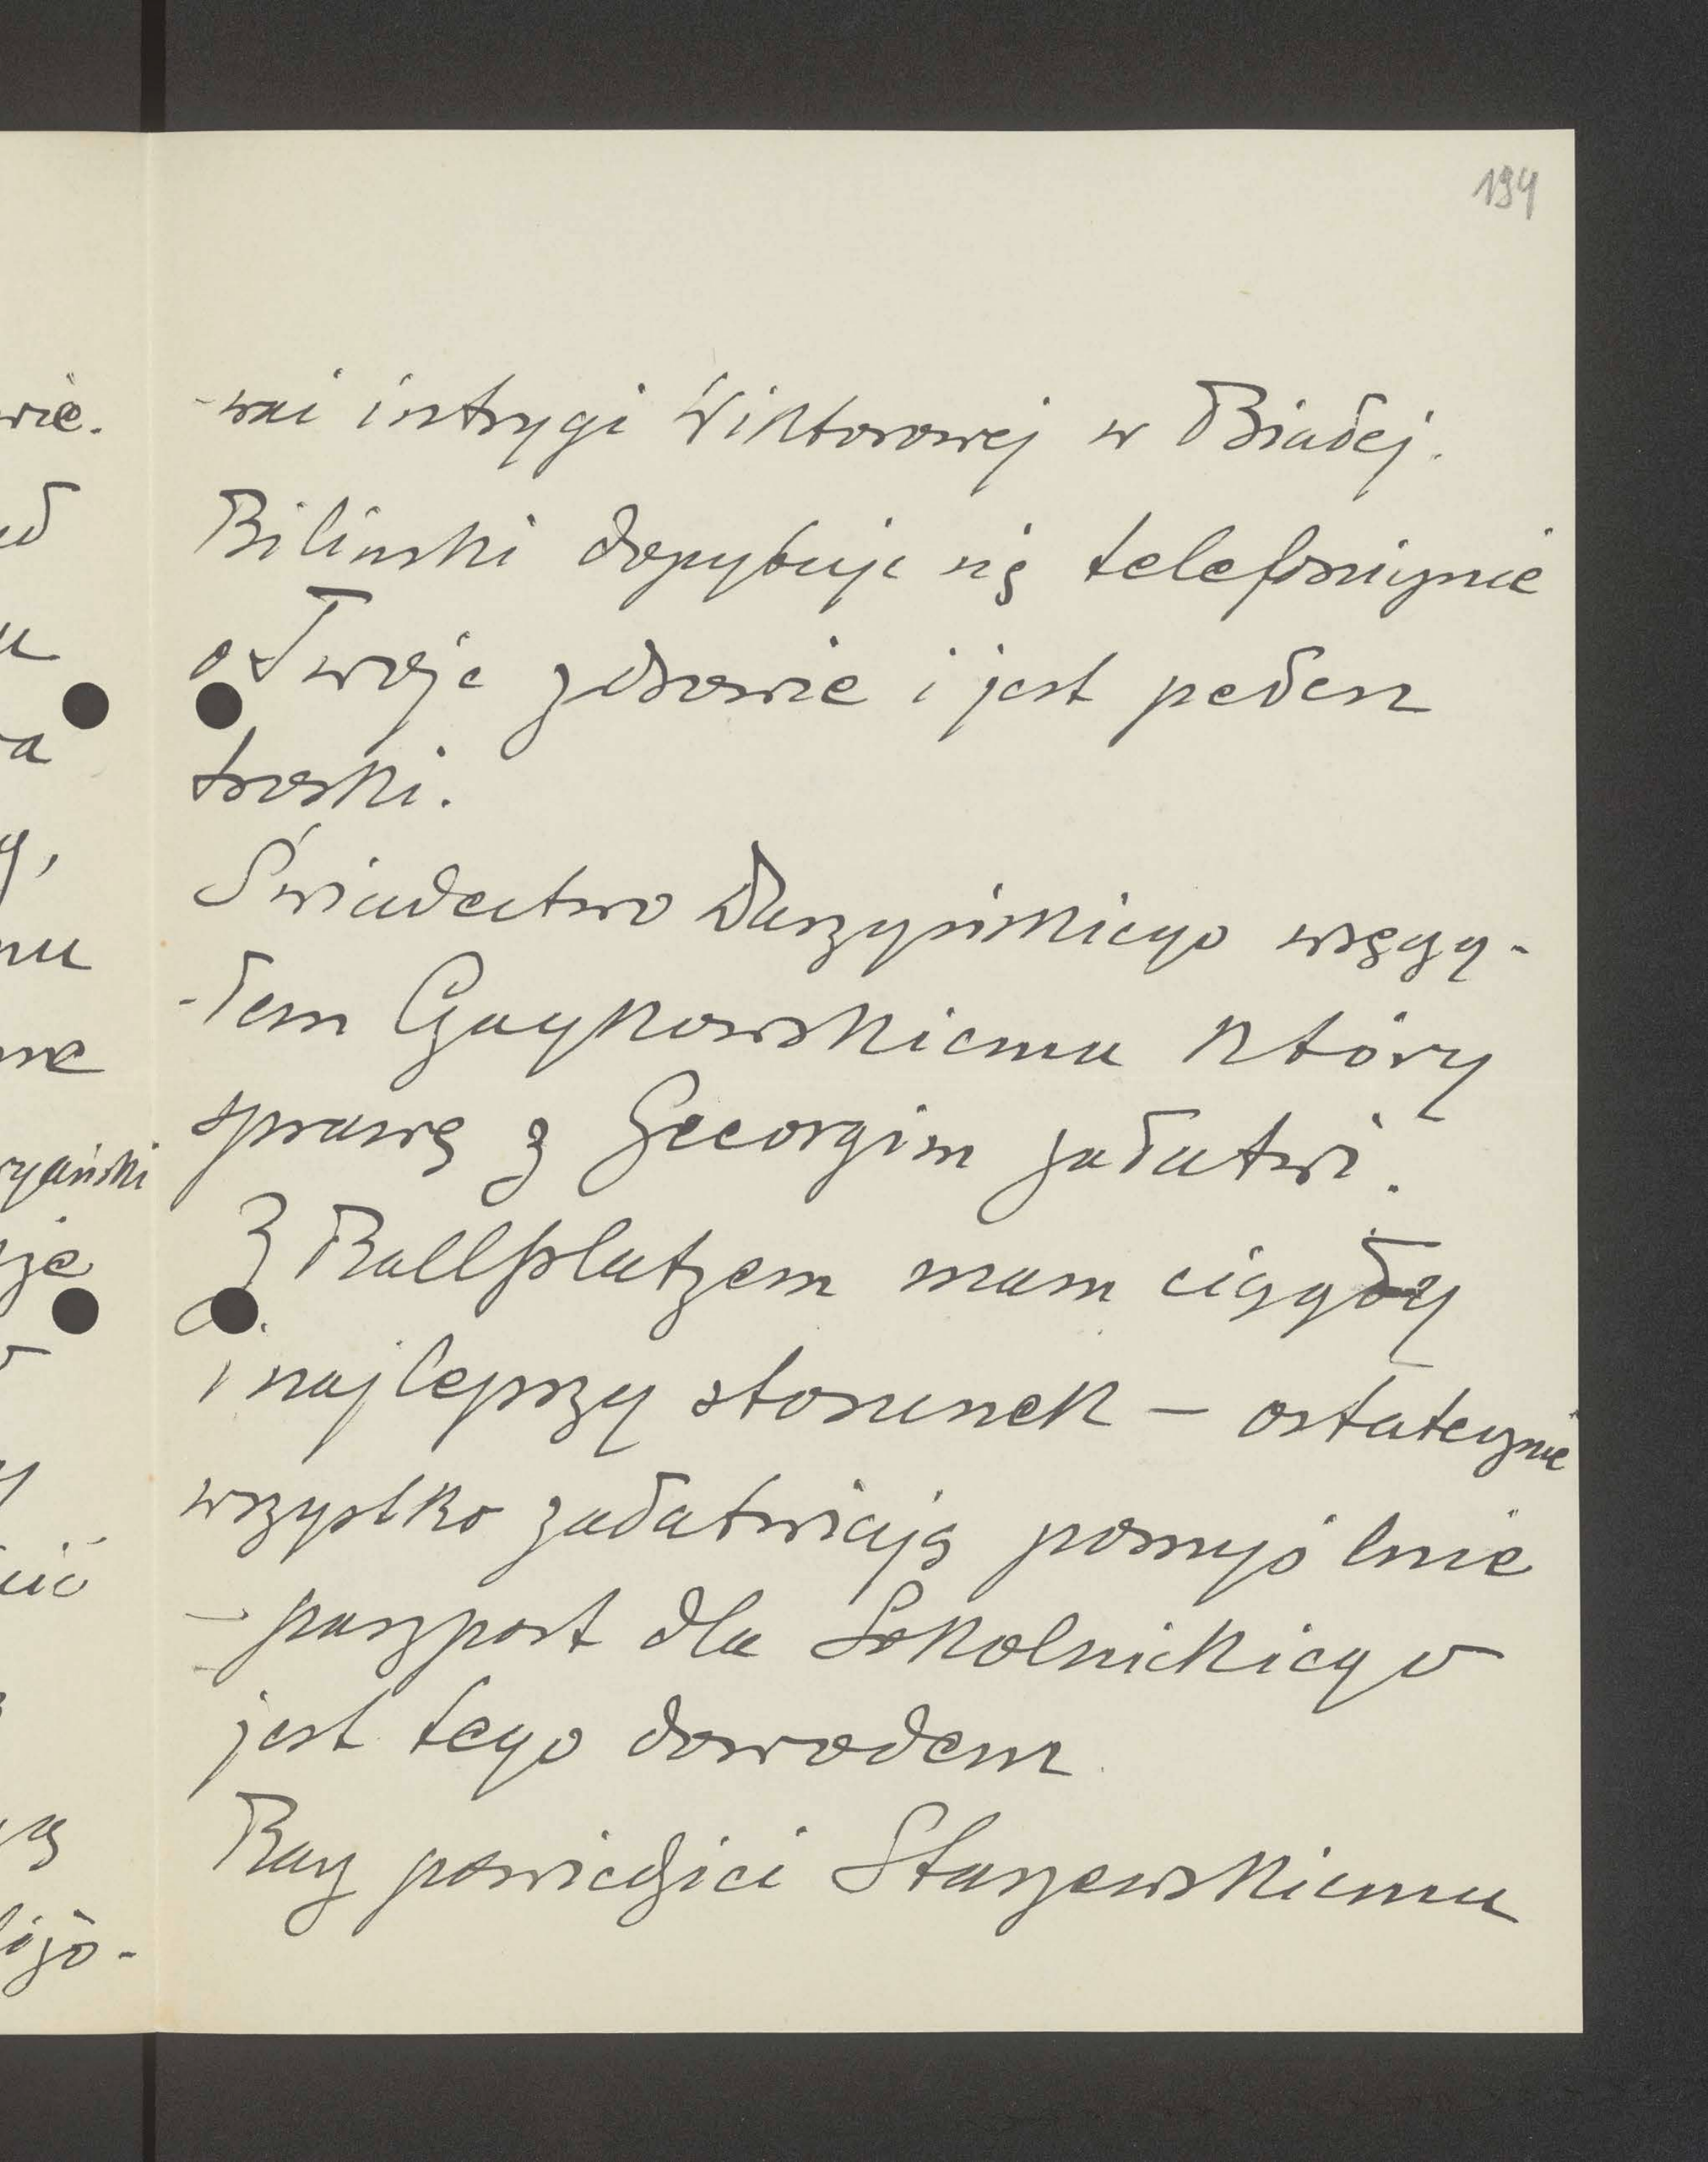 194
-wai intrygi Wiktorowej w Białej.
Bilinski dopytuje się telefonicznie
o Twoje zdrowie i jest pełen
troski.
Świadectwo Daszyńskiego wręczy-
-łem Czaykowskiemu który
sprawę z Georgim załatwi.
Z Ballplatzem mam ciągły
i najlepszy stosunek – ostatecznie
wszystko załatwiają pomyślnie
– paszport dla Sokolnickiego
jest tego dowodem.
Racz powiedzieć Staszewskiemu